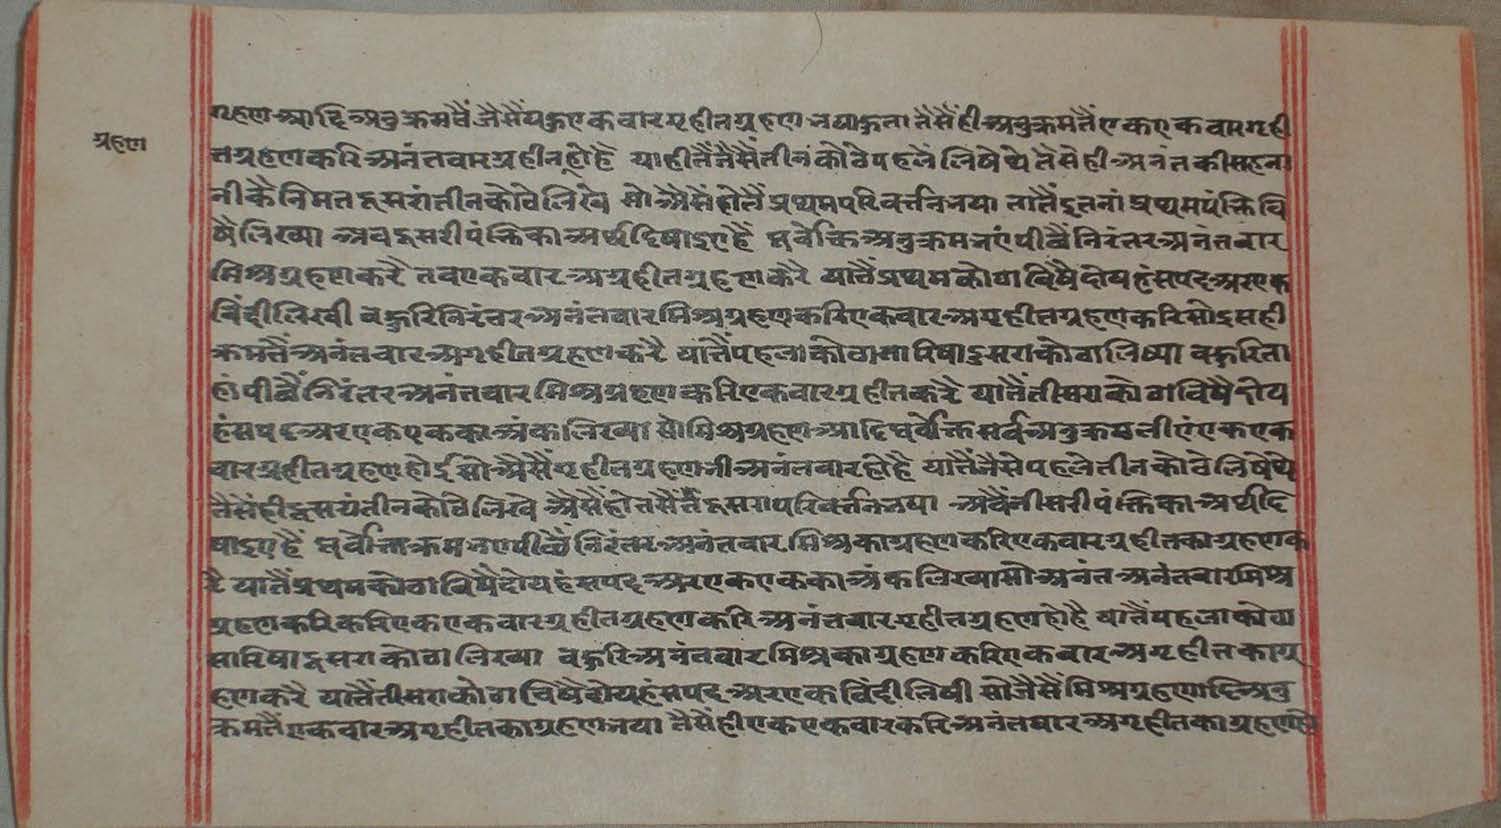 ग्रहण
ग्रहण आदि अनुक्रमतैं जैसैं यकु एक वार गृहीत ग्रहण भया कुता तैसैं ही अनुक्रमतैं एक एक वार गृही
त ग्रहण करि अनंत वार ग्रहीत हो है याही तैं जैसैं तीन कोठे पहलें लिषे थे तैसे ही अनंत की सहना
नी कै निमत दूसरां तीन कोठे लिखे सो अैसैं होतैं प्रथम परिवर्त्तन भया तातैं इतनां प्रथम पंक्ति वि
षै लिख्या अव दूसरी पंक्ति का अर्थ दिषाइए हैं पूर्वोक्त अनुक्रम भएं पीछैं निरंतर अनंत वार
मिश्र ग्रहण करै तव एक वार अग्रहीत ग्रहण करै यातैं प्रथम कोठा विषै दोय हंसपद अर एक
विंदी लिखी वहुरि निरंतर अनंत वार मिश्र ग्रहण करि एक वार अगृहीत ग्रहण करि सो इस ही
क्रमतैं अनंत वार अगृहीत ग्रहण करै यातैं पहला कोठा सारिषा दूसरा कोठा लिष्या वहुरि ता
हां पीछैं निरंतर अनंत वार मिश्र ग्रहण करि एक वार ग्रहीत करै यातैं तीसरा कोठा विषै दोय
हंसपद अर एक एक का अंक लिख्या सो मिश्र ग्रहण आदि पूर्वोक्त सर्व अनुक्रम लीएं एक एक
वार ग्रहीत ग्रहण होई सो अैसैं गृहीत ग्रहण भी अनंत वार हो है यातैं जैसे पहले तीन कोठे लिषे थे
तैसैं ही दूसरां तीन कोठे लिखे अैसैं होत सैंतैं दूसरा परिवर्त्तन भया अवैं तीसरी पंक्ति का अर्थ दि
षाइए हैं पूर्वोक्त क्रम भएं पीछैं निरंतर अनंत वार मिश्र का ग्रहण करि एक वार ग्रहीत का ग्रहण क
रै यातैं प्रथम कोठा विषै दोय हंसपद अर एक एक का अंक लिख्या सो अनंत अनंत वार मिश्र
ग्रहण करि करि एक एक वार ग्रहीत ग्रहण करि अनंत वार गृहीत ग्रहण हो है यातैं पहला कोठा
सारिषा दूसरा कोठा लिख्या वहुरि अनंत वार मिश्र का ग्रहण करि एक वार अगृहीत का ग्र
हण करै यातैं तीसरा कोठा विषै दोय हंसपद अर एक विंदी लिषी सो जैसैं मिश्र ग्रहणादि अनु
क्रमतैं एक वार अगृहीत का ग्रहण भया तैसैं ही एक एक वार करि अनंत वार अगृहीत का ग्रहण हो